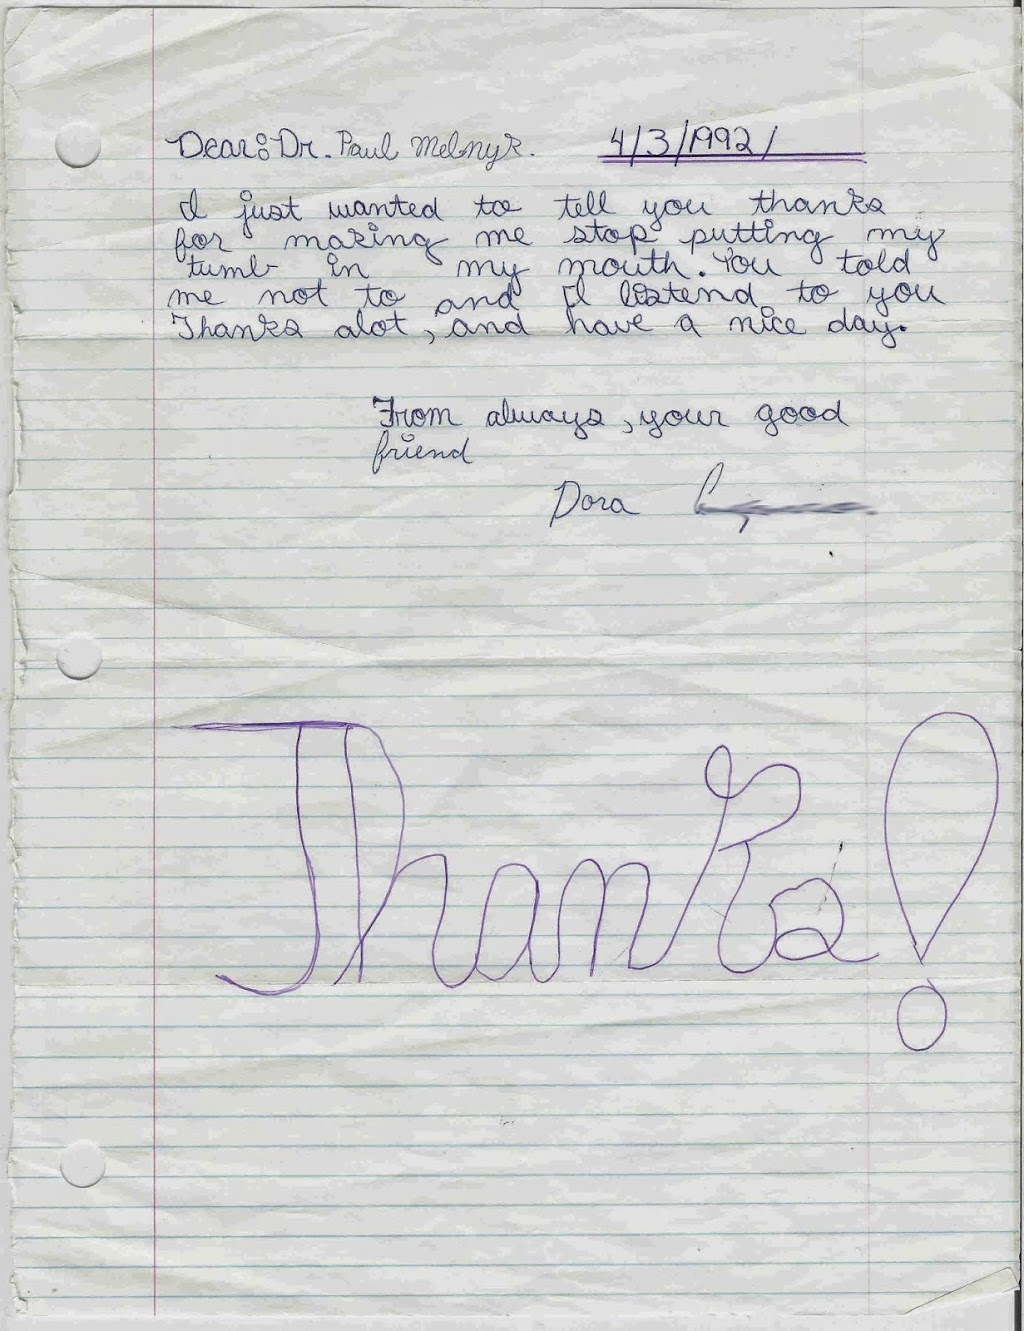 Dear: Dr. Paul Melnyk. 4/3/1992/
I just wanted to tell you thanks
for making me stop putting my
tumb in my mouth. You told
me not to and I listend to you
Thanks alot, and have a nice day.
From always, your good
friend
Dora
Thanks!